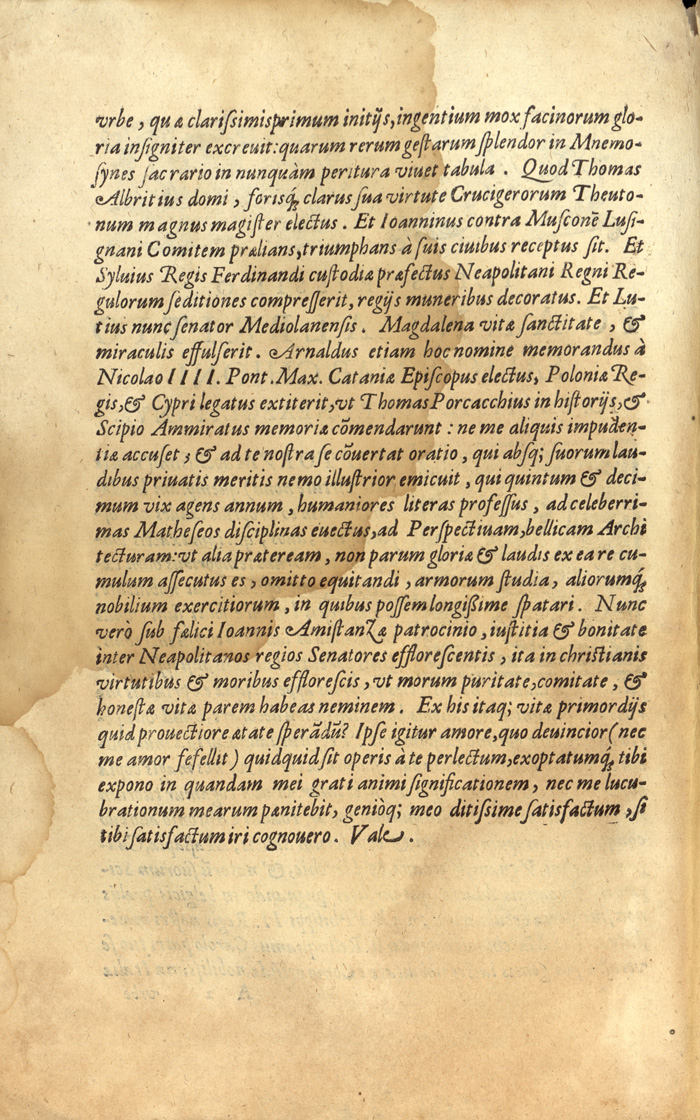 vrbe, quæ clarißimis primum initijs, ingentium mox facinorum glo-
ria insigniter excreuit: quarum rerum gestarum splendor in Mnemo-
synes sacrario in nunquàm peritura viuet tabula. Quod Thomas
Albritius domi, forisq; clarus sua virtute Crucigerorum Theuto-
num magnus magister electus. Et Ioanninus contra Musconē Lusi-
gnani Comitem prælians, triumphans à suis ciuibus receptus sit. Et
Syluius Regis Ferdinandi custodiæ præfectus Neapolitani Regni Re-
gulorum seditiones compresserit, regijs muneribus decoratus. Et Lu-
tius nunc senator Mediolanensis. Magdalena vitæ sanctitate, &
miraculis effulserit. Arnaldus etiam hoc nomine memorandus à
Nicolao IIII. Pont. Max. Cataniæ Episcopus electus, Poloniæ Re-
gis, & Cypri legatus extiterit, vt Thomas Porcacchius in historijs, &
Scipio Ammiratus memoriæ cōmendarunt: ne me aliquis impuden-
tiæ accuset; & ad te nostra se cōuertat oratio, qui absq; suorum lau-
dibus priuatis meritis nemo illustrior emicuit, qui quintum & deci-
mum vix agens annum, humaniores literas professus, ad celeberri-
mas Matheseos disciplinas euectus, ad Perspectiuam, bellicam Archi
tecturam: vt alia præteream, non parum gloriæ & laudis ex ea re cu-
mulum assecutus es, omitto equitandi, armorum studia, aliorumq;
nobilium exercitiorum, in quibus possem longißime spatari. Nunc
verò sub fælici Ioannis Amistanzæ patrocinio, iustitia & bonitate
inter Neapolitanos regios Senatores efflorescentis, ita in christianis
virtutibus & moribus efflorescis, vt morum puritate, comitate, &
honestæ vitæ parem habeas neminem. Ex his itaq; vitæ primordijs
quid prouectiore ætate sperādū? Ipse igitur amore, quo deuincior (nec
me amor fefellit) quidquid sit operis à te perlectum, exoptatumq; tibi
expono in quandam mei grati animi significationem, nec me lucu-
brationum mearum pænitebit, genióq; meo ditissime satisfactum, si
tibi satisfactum iri cognouero. Vale.